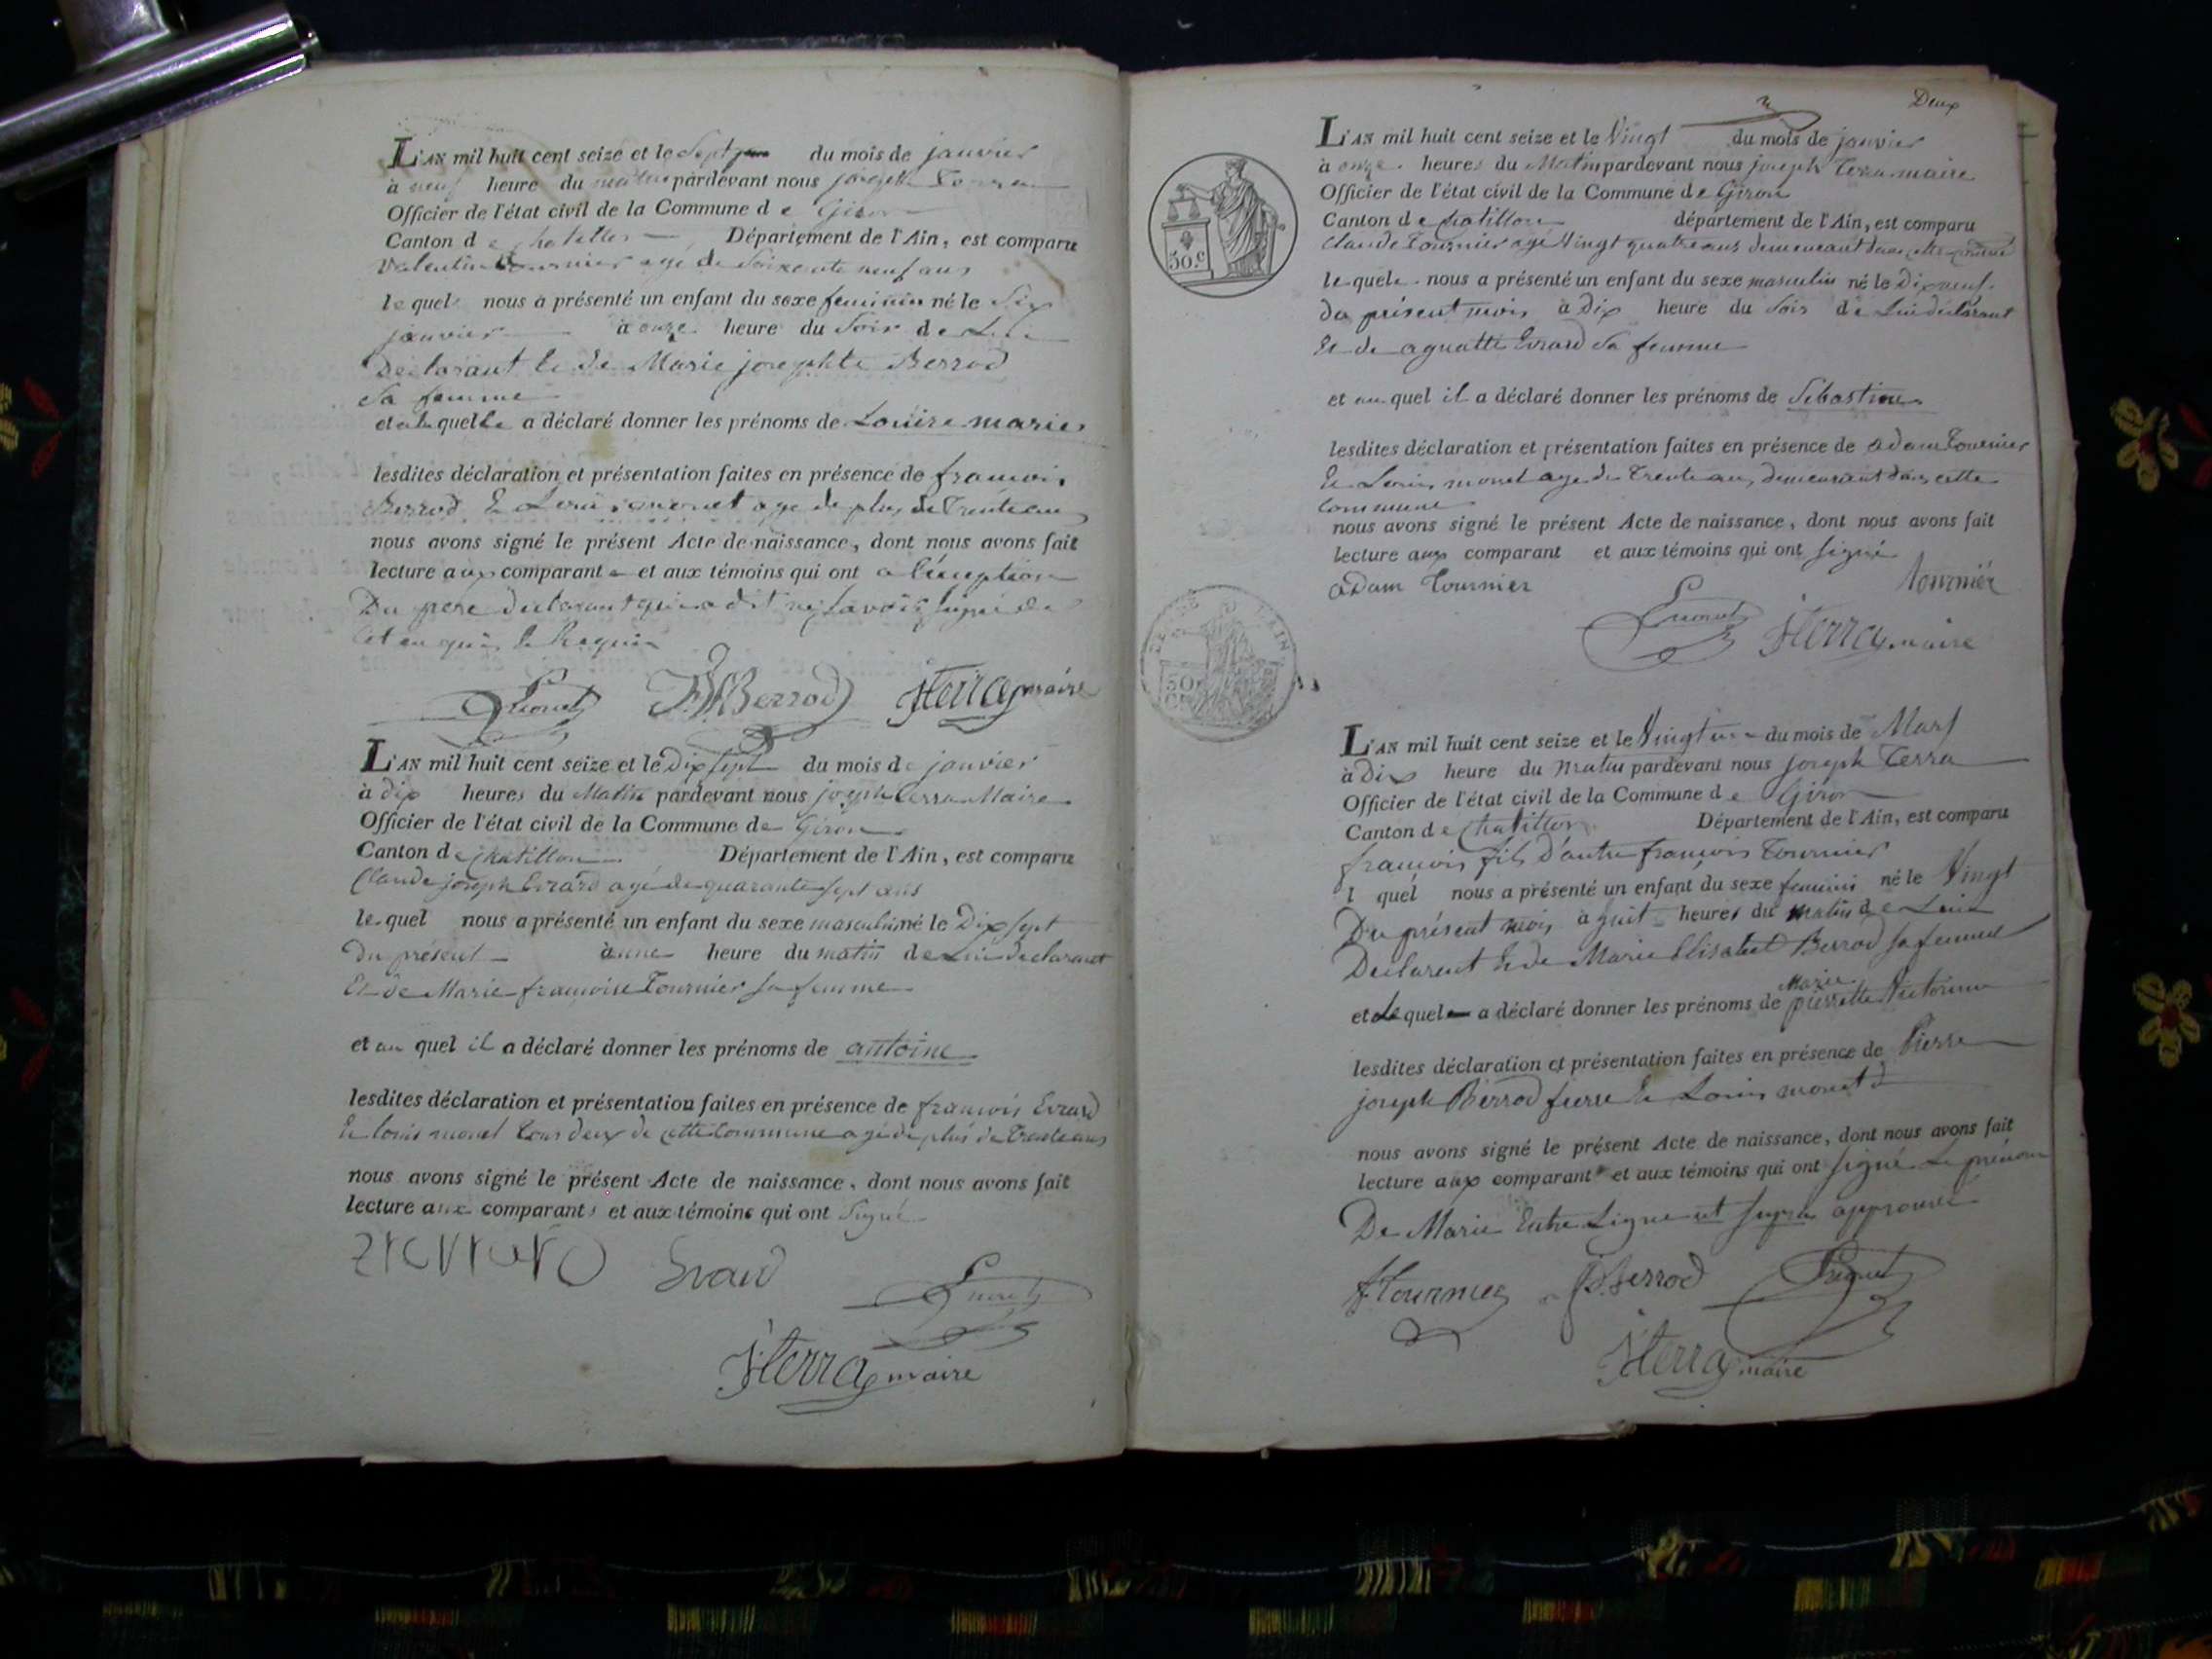 L'AN mil huit cent seize et le Sept du mois de janvier
à neuf heure du matin pardevant nous joseph Terra
Officier de l'état civil de la Commune de Giron
Canton de chatillon Département de l'Ain, est comparu
Valentin Tournier agé de Soixante neuf ans
lequel nous a présenté un enfant du sexe feminin né le Six
janvier à onze heure du Soir de Lui
Declarant et de Marie josephte Berrod
Sa femme
et a laquelle a déclaré donner les prénoms de Louise marie
lesdites déclaration et présentation faites en présence de francois
Berrod Et Louis monet age de plus de Trente ans
nous avons signé le présent Acte de naissance, dont nous avons fait
lecture aux comparant et aux témoins qui ont a l'éxception
Du pere declarant qui a dit ne savoir signé de
Cet enquis Et Requis
Lmonet F.Berrod JTerra maire
L'AN mil huit cent seize et le Dix Sept du mois de janvier
à dix heures du Matin pardevant nous joseph Terra Maire
Officier de l'état civil de la Commune de Giron
Canton de chatillon Département de l'Ain, est comparu
Claude joseph Evrard agé de quarante sept ans
lequel nous a présenté un enfant du sexe masculin né le Dix sept
du présent à une heure du matin de Lui declarant
Et de Marie francoise Tournier sa femme
et au quel il a déclaré donner les prénoms de antoine
lesdites déclaration et présentation faites en présence de francois Evrard
Et louis monet tous deux de cette commune agé de plus de Trente ans
nous avons signé le présent Acte de naissance, dont nous avons fait
lecture aux comparants et aux témoins qui ont Signé
Evrard Lmonet
JTerra maire
Deux
L'AN mil huit cent seize et le Vingt du mois de janvier
à onze heures du Matin pardevant nous joseph Terra maire
Officier de l'état civil de la Commune de Giron
Canton de chatillon département de l'Ain, est comparu
Claude Tournier agé Vingt quatre ans demeurant dans cette commune
lequel nous a présenté un enfant du sexe masculin né le Dix neuf
du présent mois à Dix heure du Soir de Lui declarant
Et de aguatte Evrard Sa femme
et au quel il a déclaré donner les prénoms de Sébastien
lesdites déclaration et présentation faites en présence de adam Tournier
Et Louis monet age de Trente ans demeurant dans cette
Commune
nous avons signé le présent Acte de naissance, dont nous avons fait
lecture aux comparant et aux témoins qui ont signé
aDam Tournier tournier
Lmonet JTerra maire
50.c
L'AN mil huit cent seize et le Vingt un du mois de Mars
à Dix heure du matin pardevant nous joseph Terra
Officier de l'état civil de la Commune de Giron
Canton de chatillon Département de l'Ain, est comparu
francois fils d'autre francois Tournier
l quel nous a présenté un enfant du sexe feminin né le Vingt
Du présent mois à huit heures du matin de Lui
Declarent Et de Marie Elisabet Berrod sa femme
Marie
et quel a déclaré donner les prénoms de pierrette Victorine
lesdites déclaration et présentation faites en présence de Pierre
joseph Berrod Et Louis monet
nous avons signé le présent Acte de naissance, dont nous avons fait
lecture aux comparant et aux témoins qui ont signé Le prénom
De Marie Entre Ligne ut supra approuvé
fTournier P.Berrod Lmonet
JTerra maire